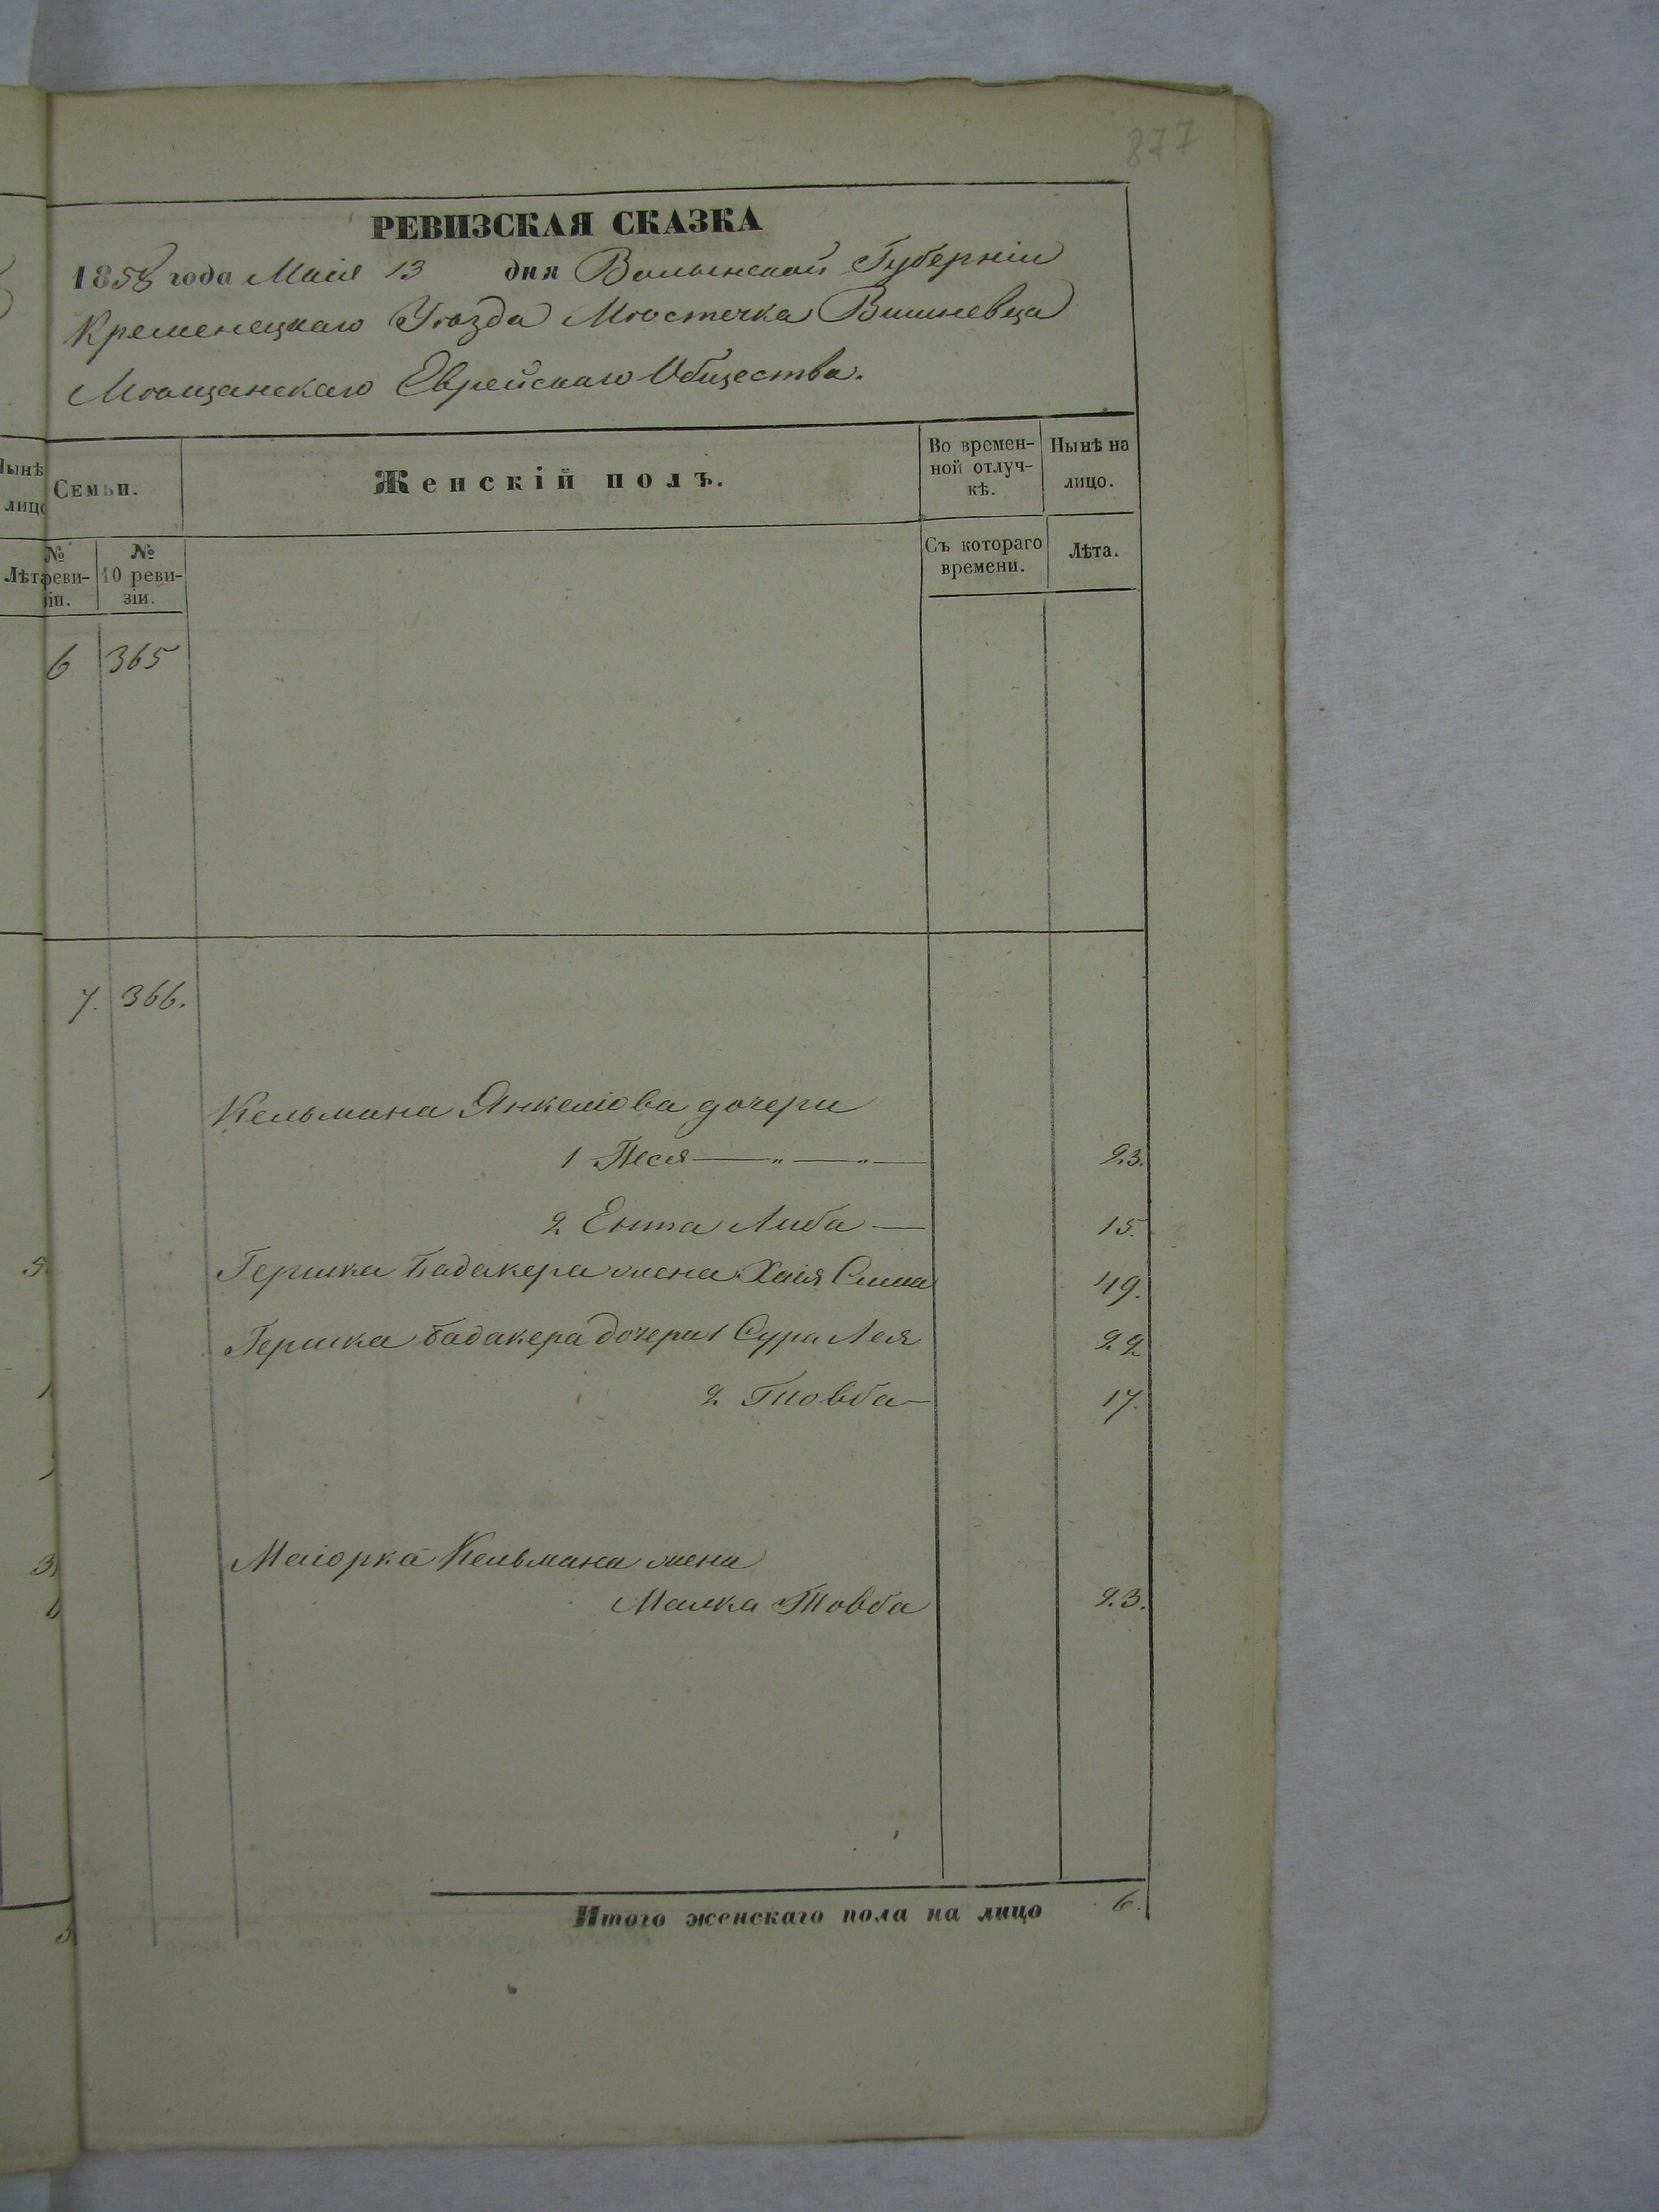 877
РЕВИЗСКАЯ СКАЗКА
1858 года Маія 13 дня Волынской Губерніи
Кременецкаго Уѣзда Мѣстечка Вишневца
Мѣщанскаго Еврейскаго Общества.
Нынѣ
лицо
Семьи.
Женскій полъ.
Во времен-
ной отлуч-
кѣ.
Нынѣ на
лицо.
Лѣта
№
реви-
зіи.
№
10 реви-
зіи.
Съ котораго
времени.
Лѣта.
6 365
7. 366.
Кельмана Янкеліова дочери
1 Песя — „ — „ — 23.
2 Ента Либа — 15.
Гершка Бадакера жена Хаія Сима 49.
Гершка Бадакера дочери 1 Сура Лея 22
2 Товба — 17.
Маіорка Кельмана жена
Малка Товба 23.
Итого женскаго пола на лицо 6.